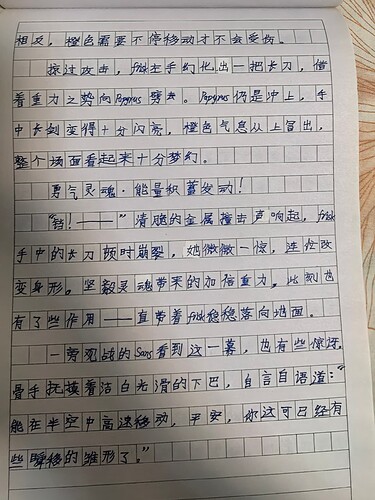 相交，橙色需要不停移动才不会受伤。
掠过攻击，frisk左手幻化出一把长刀，借
着重力之势向Papyrus劈去。Papyrus仍是冲上，手
中长剑变得十分闪亮，橙色气息从上冒出，
整个场面看起来十分梦幻。
勇气灵魂·能量积蓄发动！
“铛！——”清脆的金属撞击声响起，frisk
手中的长刀顿时崩裂，她微微一惊，连忙改
变身形。坚毅灵魂带来的加倍重力，此刻也
有了些作用——直带着frisk稳稳落向地面。
一旁观战的Sans看到这一幕，也有些惊讶。
骨手抚摸着洁白光滑的下巴，自言自语道：“
能在半空中高速移动，平安，你这可已经有
些瞬移的雏形了。”